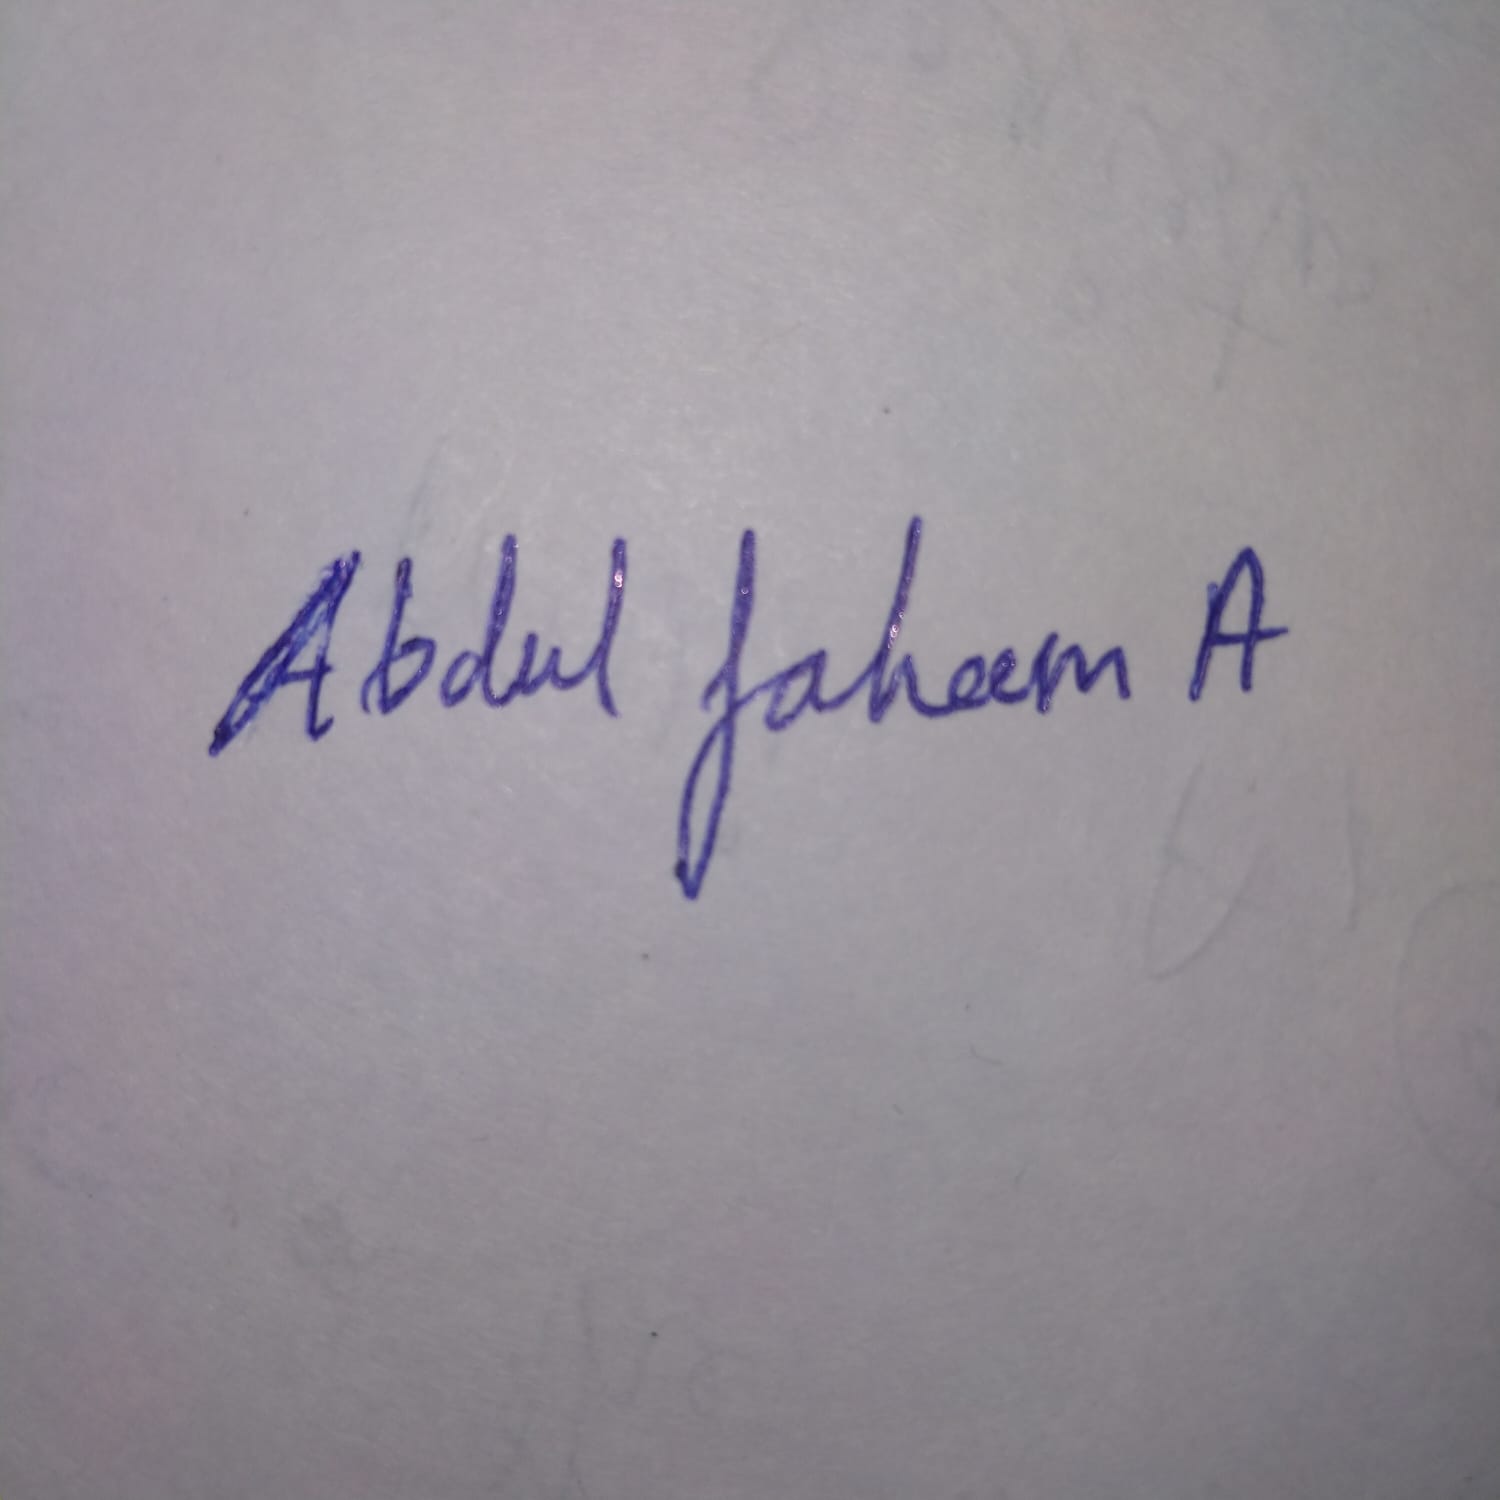 Abdul faheem A